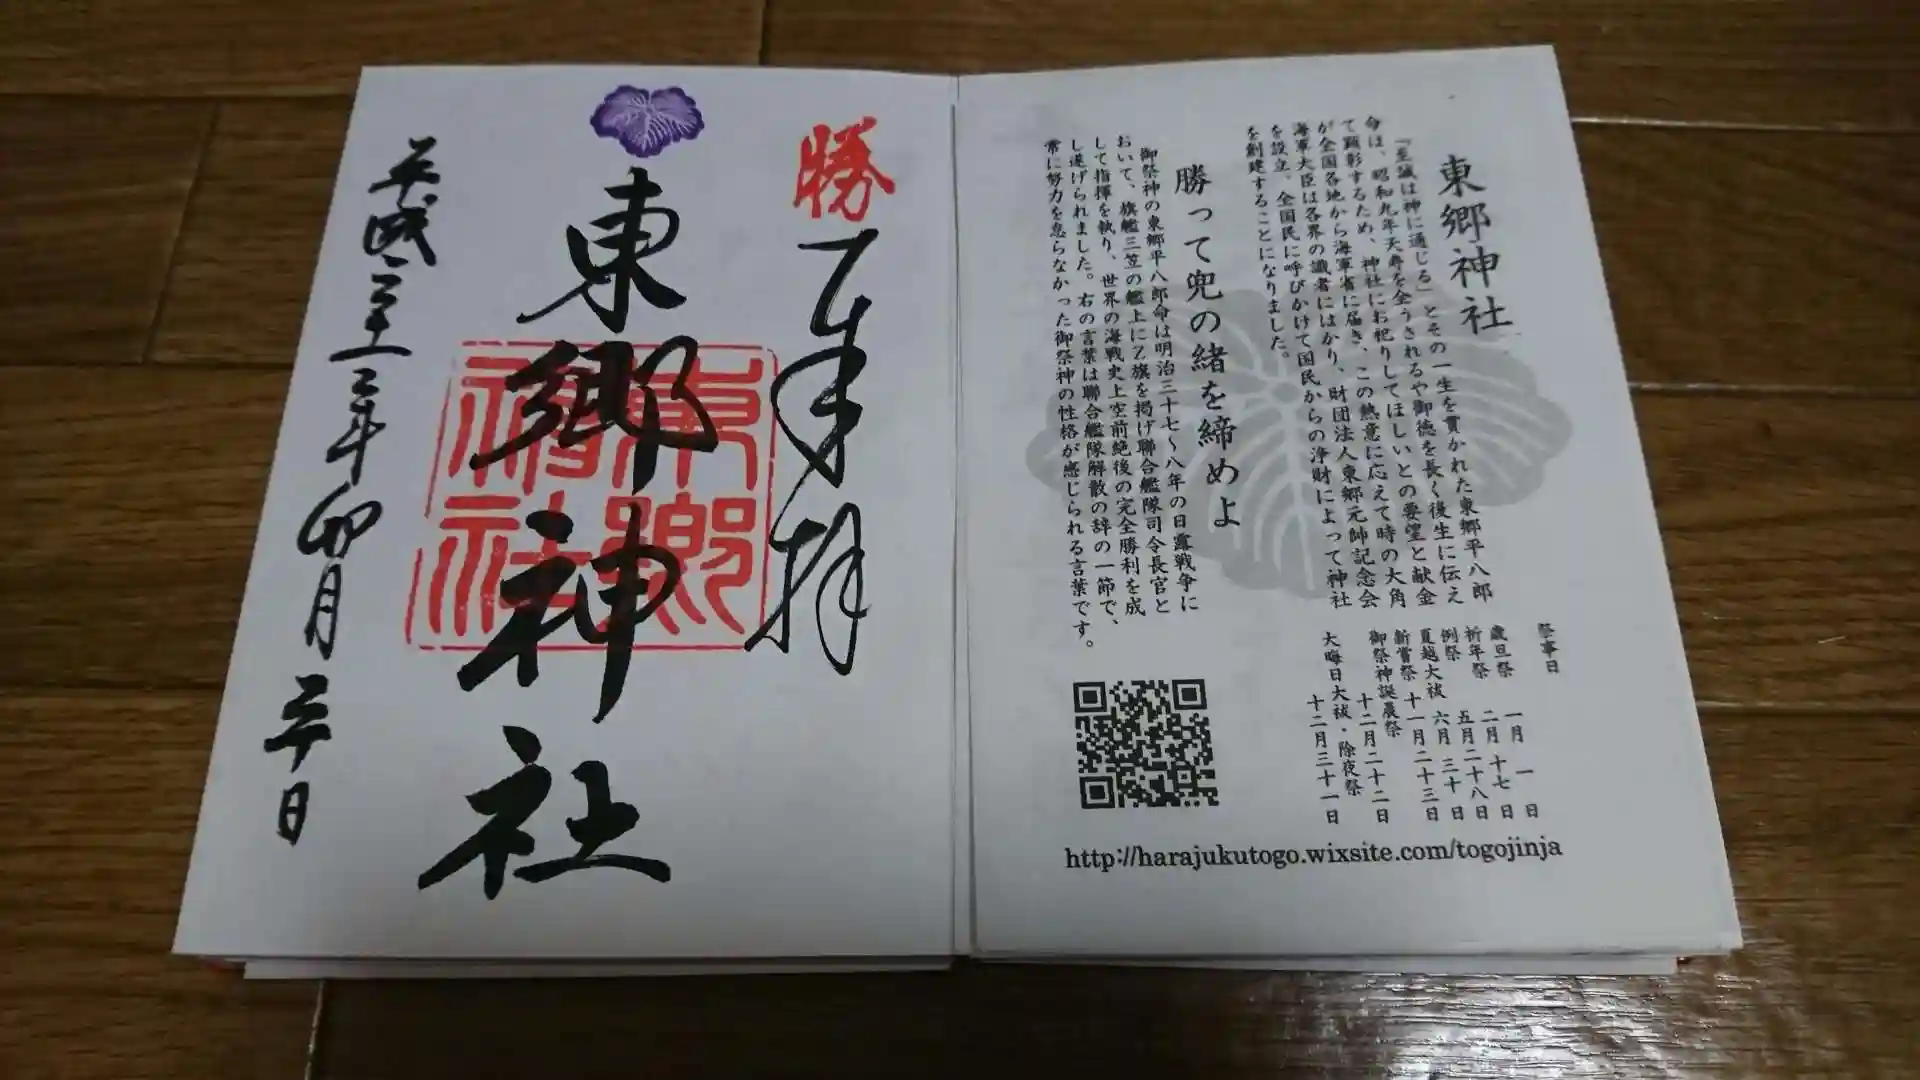 東郷神社
『至誠は神に通じる』とその一生を貫かれた東郷平八郎
命は、昭和九年天寿を全うされるや御徳を長く後生に伝え
て顕彰するため、神社にお祀りしてほしいとの要望と献金
が全国各地から海軍省に届き、この熱意に応えて時の大角
海軍大臣は各界の識者にはかり、財団法人東郷元帥記念会
を設立、全国民に呼びかけて国民からの浄財によって神社
を創建することになりました。
勝って兜の緒を締めよ
御祭神の東郷平八郎命は明治三十七～八年の日露戦争に
おいて、旗艦三笠の艦上にZ旗を掲げ聯合艦隊司令長官と
して指揮を執り、世界の海戦史上空前絶後の完全勝利を成
し遂げられました。右の言葉は聯合艦隊解散の辞の一節で、
常に努力を怠らなかった御祭神の性格が感じられる言葉です。
祭事日
歳旦祭 一月一日
祈年祭 二月十七日
例祭 五月二十八日
夏越大祓 六月三十日
新嘗祭 十一月二十三日
御祭神誕晨祭 十二月二十二日
大晦日大祓・除夜祭 十二月三十一日
http://harajukutogo.wixsite.com/togojinja
勝
奉拝
東郷神社
東郷
神社
平成三十一年卯月三十日